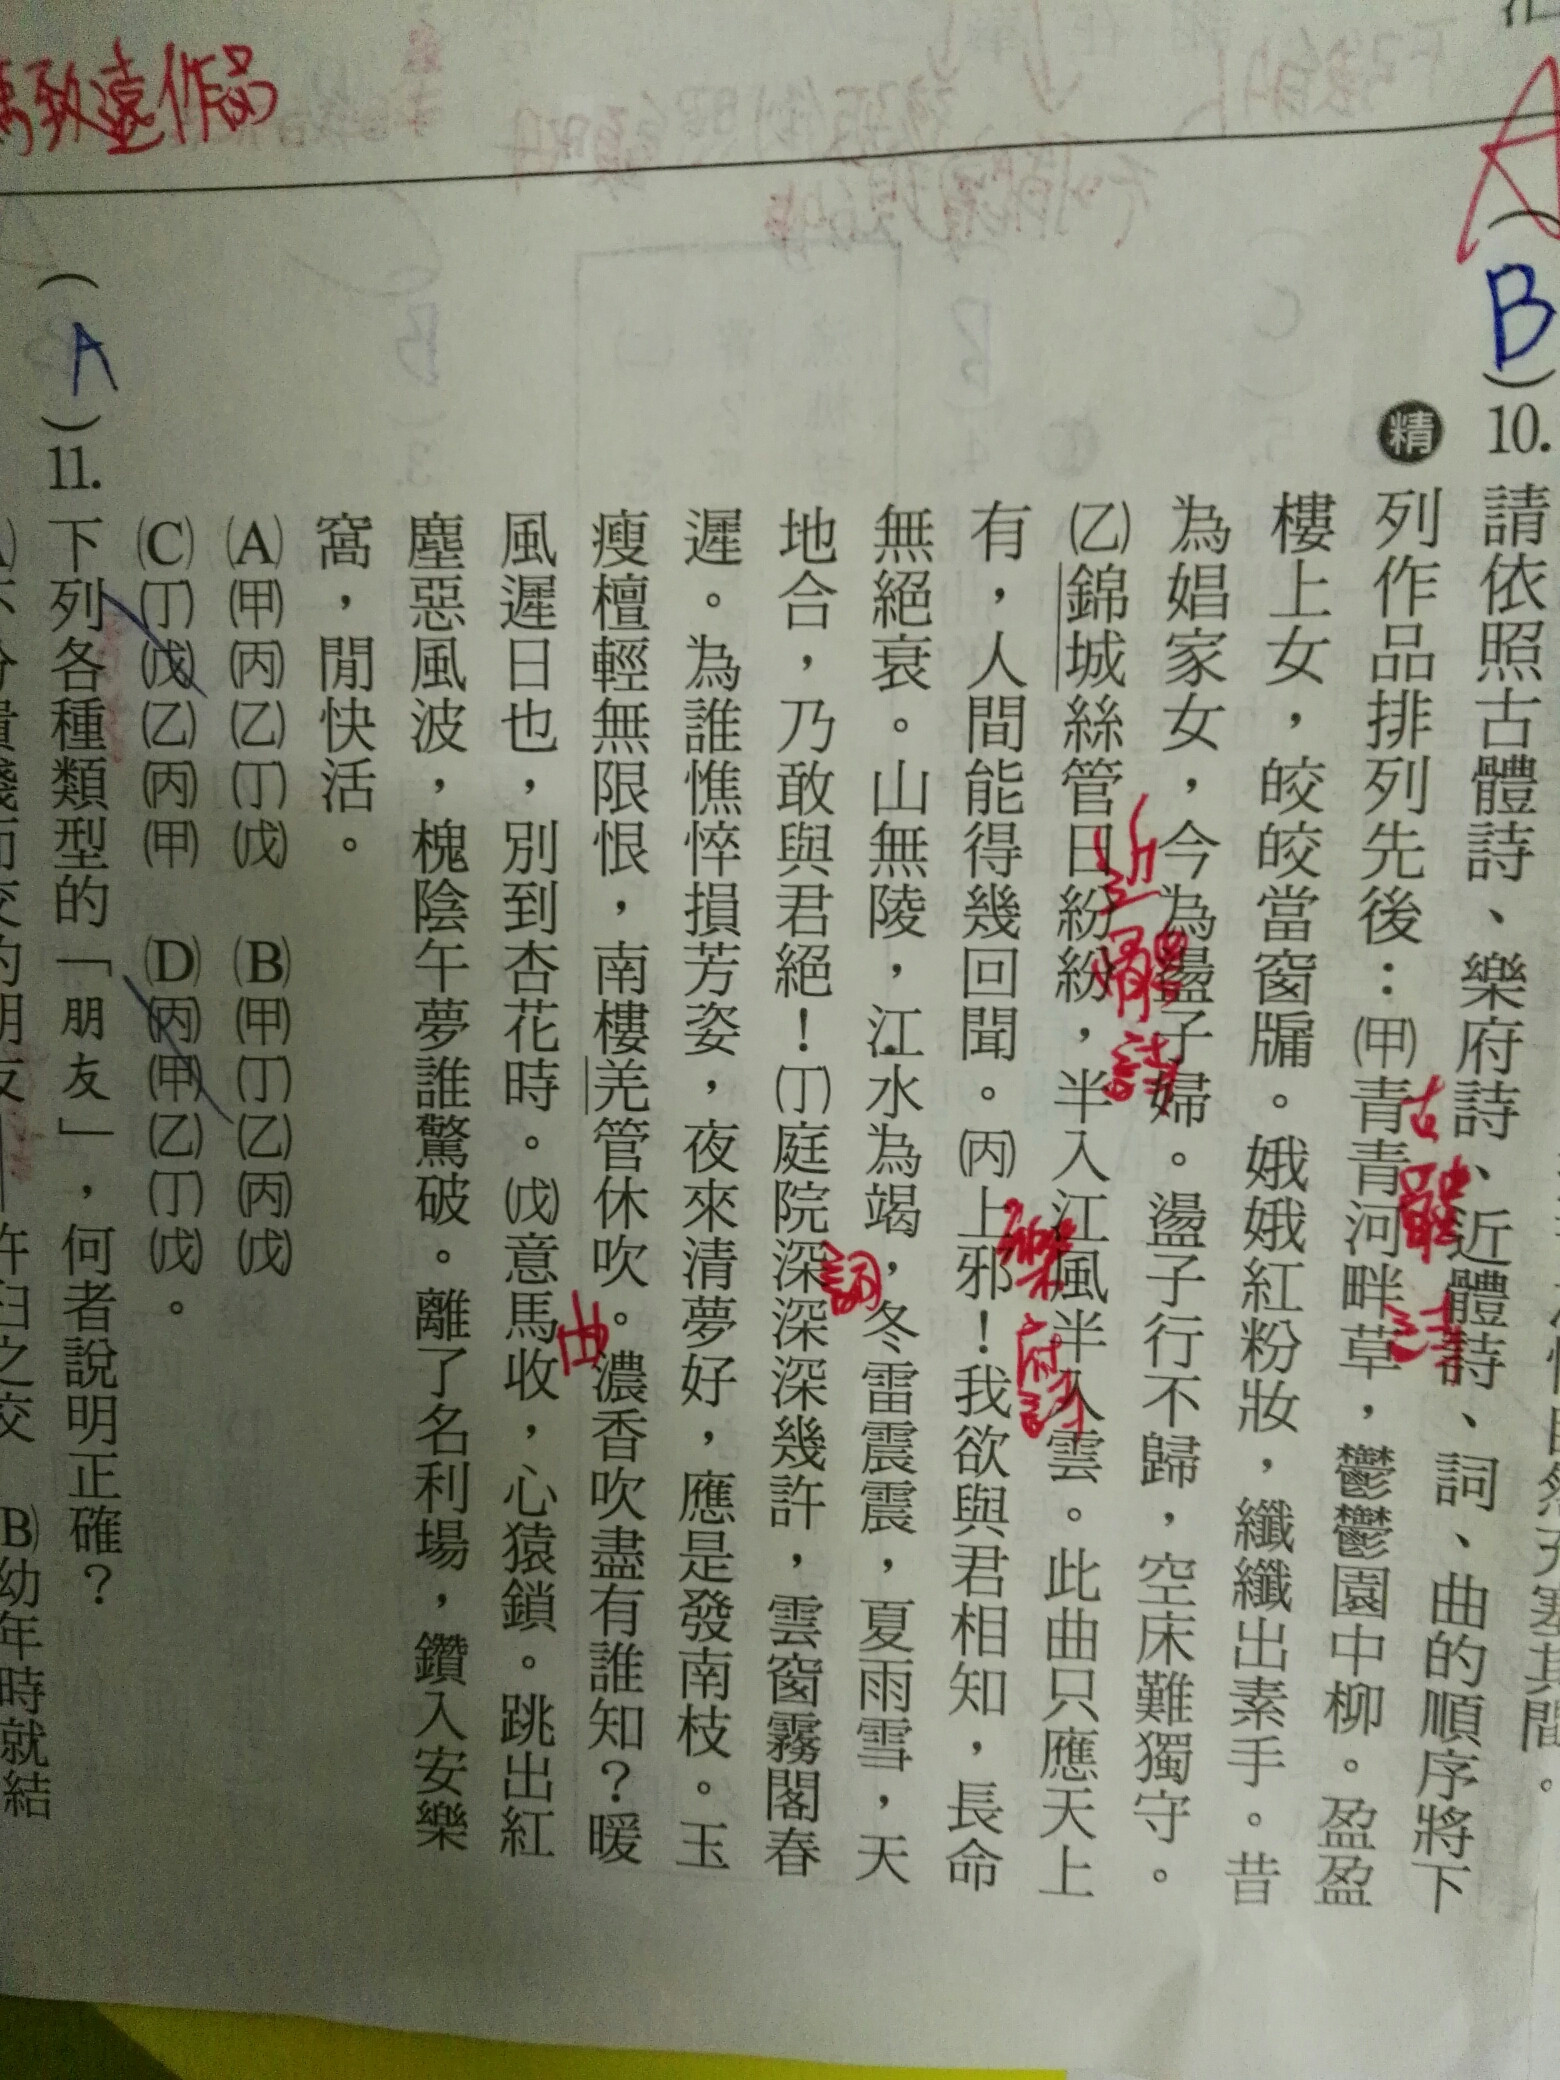 致遠作品
A
(B)10.請依照古體詩、樂府詩、近體詩、詞、曲的順序將下
精
列作品排列先後：㈙青青河畔草，鬱鬱園中柳。盈盈
古體詩
樓上女，皎皎當窗牖。娥娥紅粉妝，纖纖出素手。昔
為娼家女，今為盪子婦。盪子行不歸，空床難獨守。
近體詩
(乙)錦城絲管日紛紛，半入江風半入雲。此曲只應天上
有，人間能得幾回聞。(丙)上邪！我欲與君相知，長命
樂府詩
無絕衰。山無陵，江水為竭，冬雷震震，夏雨雪，天
地合，乃敢與君絕！(丁)庭院深深深幾許，雲窗霧閣春
詞
遲。為誰憔悴損芳姿，夜來清夢好，應是發南枝。玉
瘦檀輕無限恨，南樓羌管休吹。濃香吹盡有誰知？暖
風遲日也，別到杏花時。(戊)意馬收，心猿鎖。跳出紅
曲
塵惡風波，槐陰午夢誰驚破。離了名利場，鑽入安樂
窩，閒快活。
(A)(甲)(丙)(乙)(丁)(戊)　(B)(甲)(丁)(乙)(丙)(戊)
(C)(丁)(戊)(乙)(丙)(甲)　(D)(丙)(甲)(乙)(丁)(戊)。
(A)11.下列各種類型的「朋友」，何者說明正確？
(B)幼年時就結